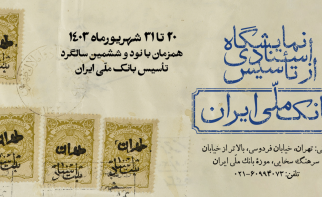 نمایشگاه
اسنادی
از تأسیس
بانک ملّی ایران
۲۰ تا ۳۱ شهریورماه ۱۴۰۳
همزمان با نود و ششمین سالگرد
تأسیس بانک ملّی ایران
تهران، خیابان فردوسی، بالاتر از خیابان
سرهنگ سخایی، موزهٔ بانک ملّی ایران
تلفن: ۶۰۹۹۴۰۷۳-۰۲۱
طهران
طهران
طهران